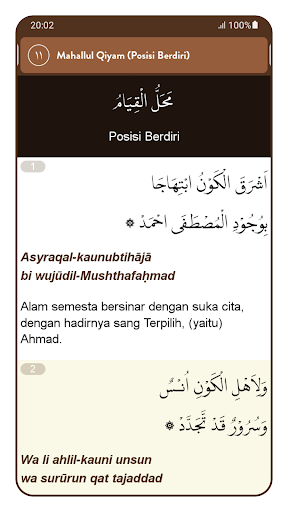 20:02 100%
١١ Mahallul Qiyam (Posisi Berdiri)
مَحَلُّ الْقِيَامُ
Posisi Berdiri
1
اَشْرَقَ الْكَوْنُ ابْتِهَاجَا
بِوُجُوْدِ الْمُصْطَفَى احْمَدْ ۞
Asyraqal-kaunubtihājā
bi wujūdil-Mushthafaḥmad
Alam semesta bersinar dengan suka cita,
dengan hadirnya sang Terpilih, (yaitu)
Ahmad.
2
وَلِاَهْلِ الْكَوْنِ اُنْسٌ
وَسُرُوْرٌ قَدْ تَجَدَّدْ ۞
Wa li ahlil-kauni unsun
wa surūrun qat tajaddad